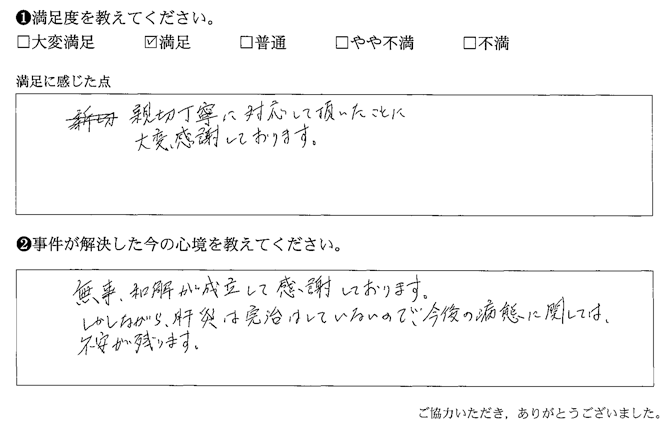 ❶満足度を教えてください。
□大変満足 ☑満足 □普通 □やや不満 □不満
満足に感じた点
新切 親切丁寧に対応して頂いたことに
大変、感謝しております。
❷事件が解決した今の心境を教えてください。
無事、和解が成立して感謝しております。
しかしながら、肝炎は完治はしていないので、今後の病態に関しては、
不安が残ります。
ご協力いただき，ありがとうございました。